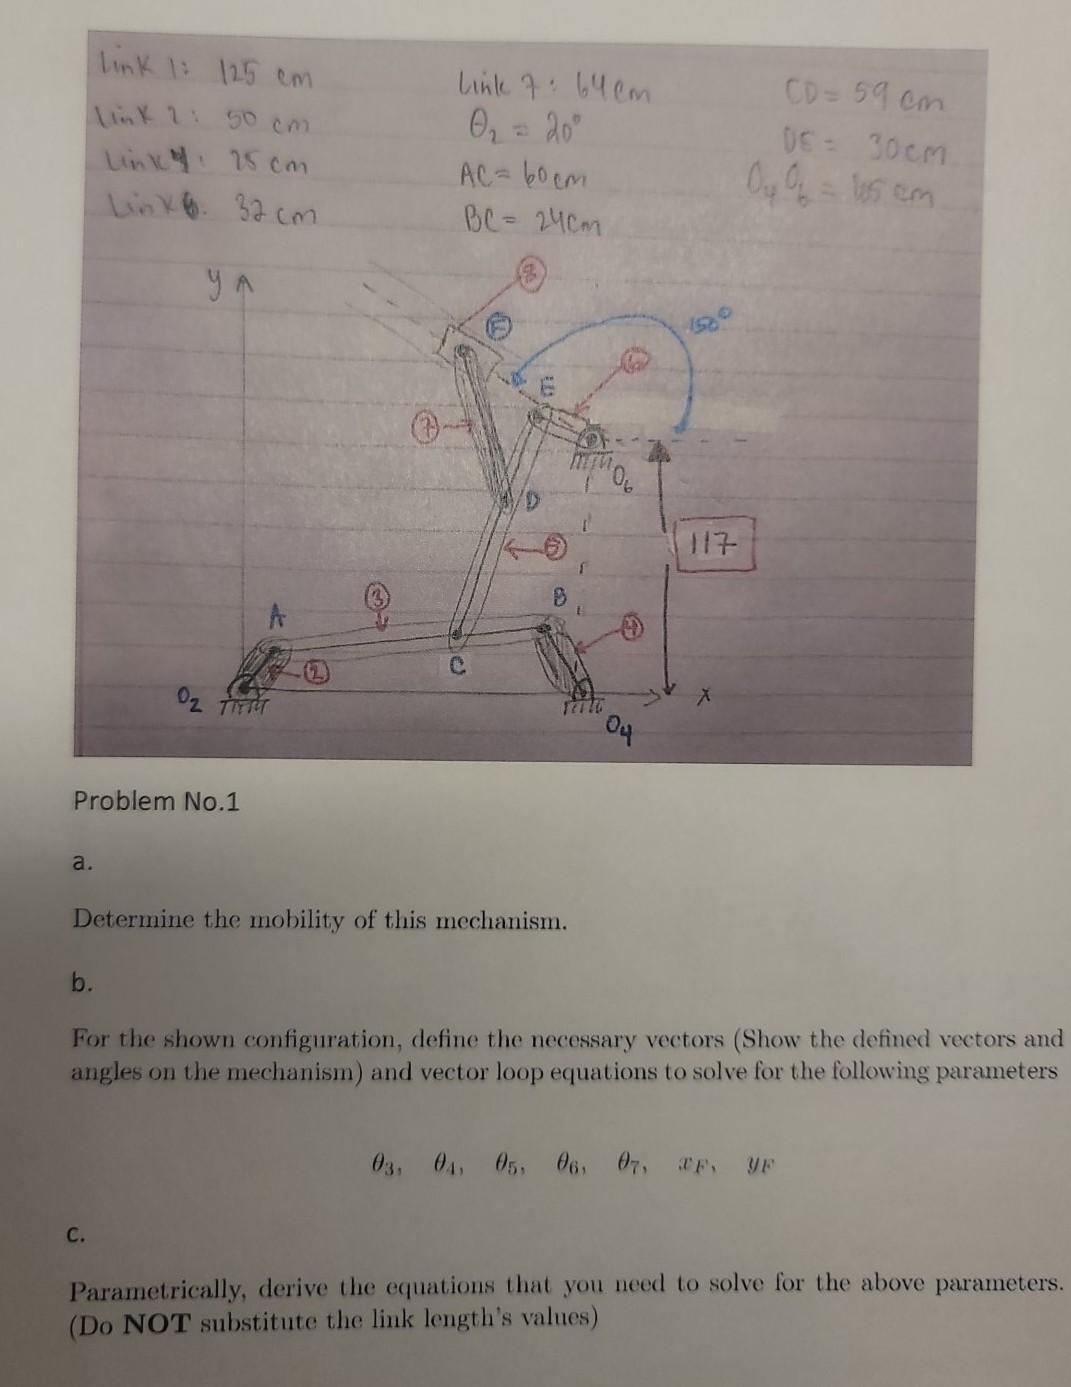 Link 1: 125 cm
Link 2: 50 cm
Link 4: 25 cm
Link 6. 32 cm
Link 7: 64cm
θ2 = 20°
AC= 60cm
BC= 24cm
CD= 59 cm
DE= 30cm
O4O6 = cm
y
8
F
150°
6
E
7
O6
D
117
5
3
B
A
4
2
C
O2
x
O4
Problem No.1
a.
Determine the mobility of this mechanism.
b.
For the shown configuration, define the necessary vectors (Show the defined vectors and
angles on the mechanism) and vector loop equations to solve for the following parameters
θ3, θ4, θ5, θ6, θ7, xF, yF
c.
Parametrically, derive the equations that you need to solve for the above parameters.
(Do NOT substitute the link length's values)